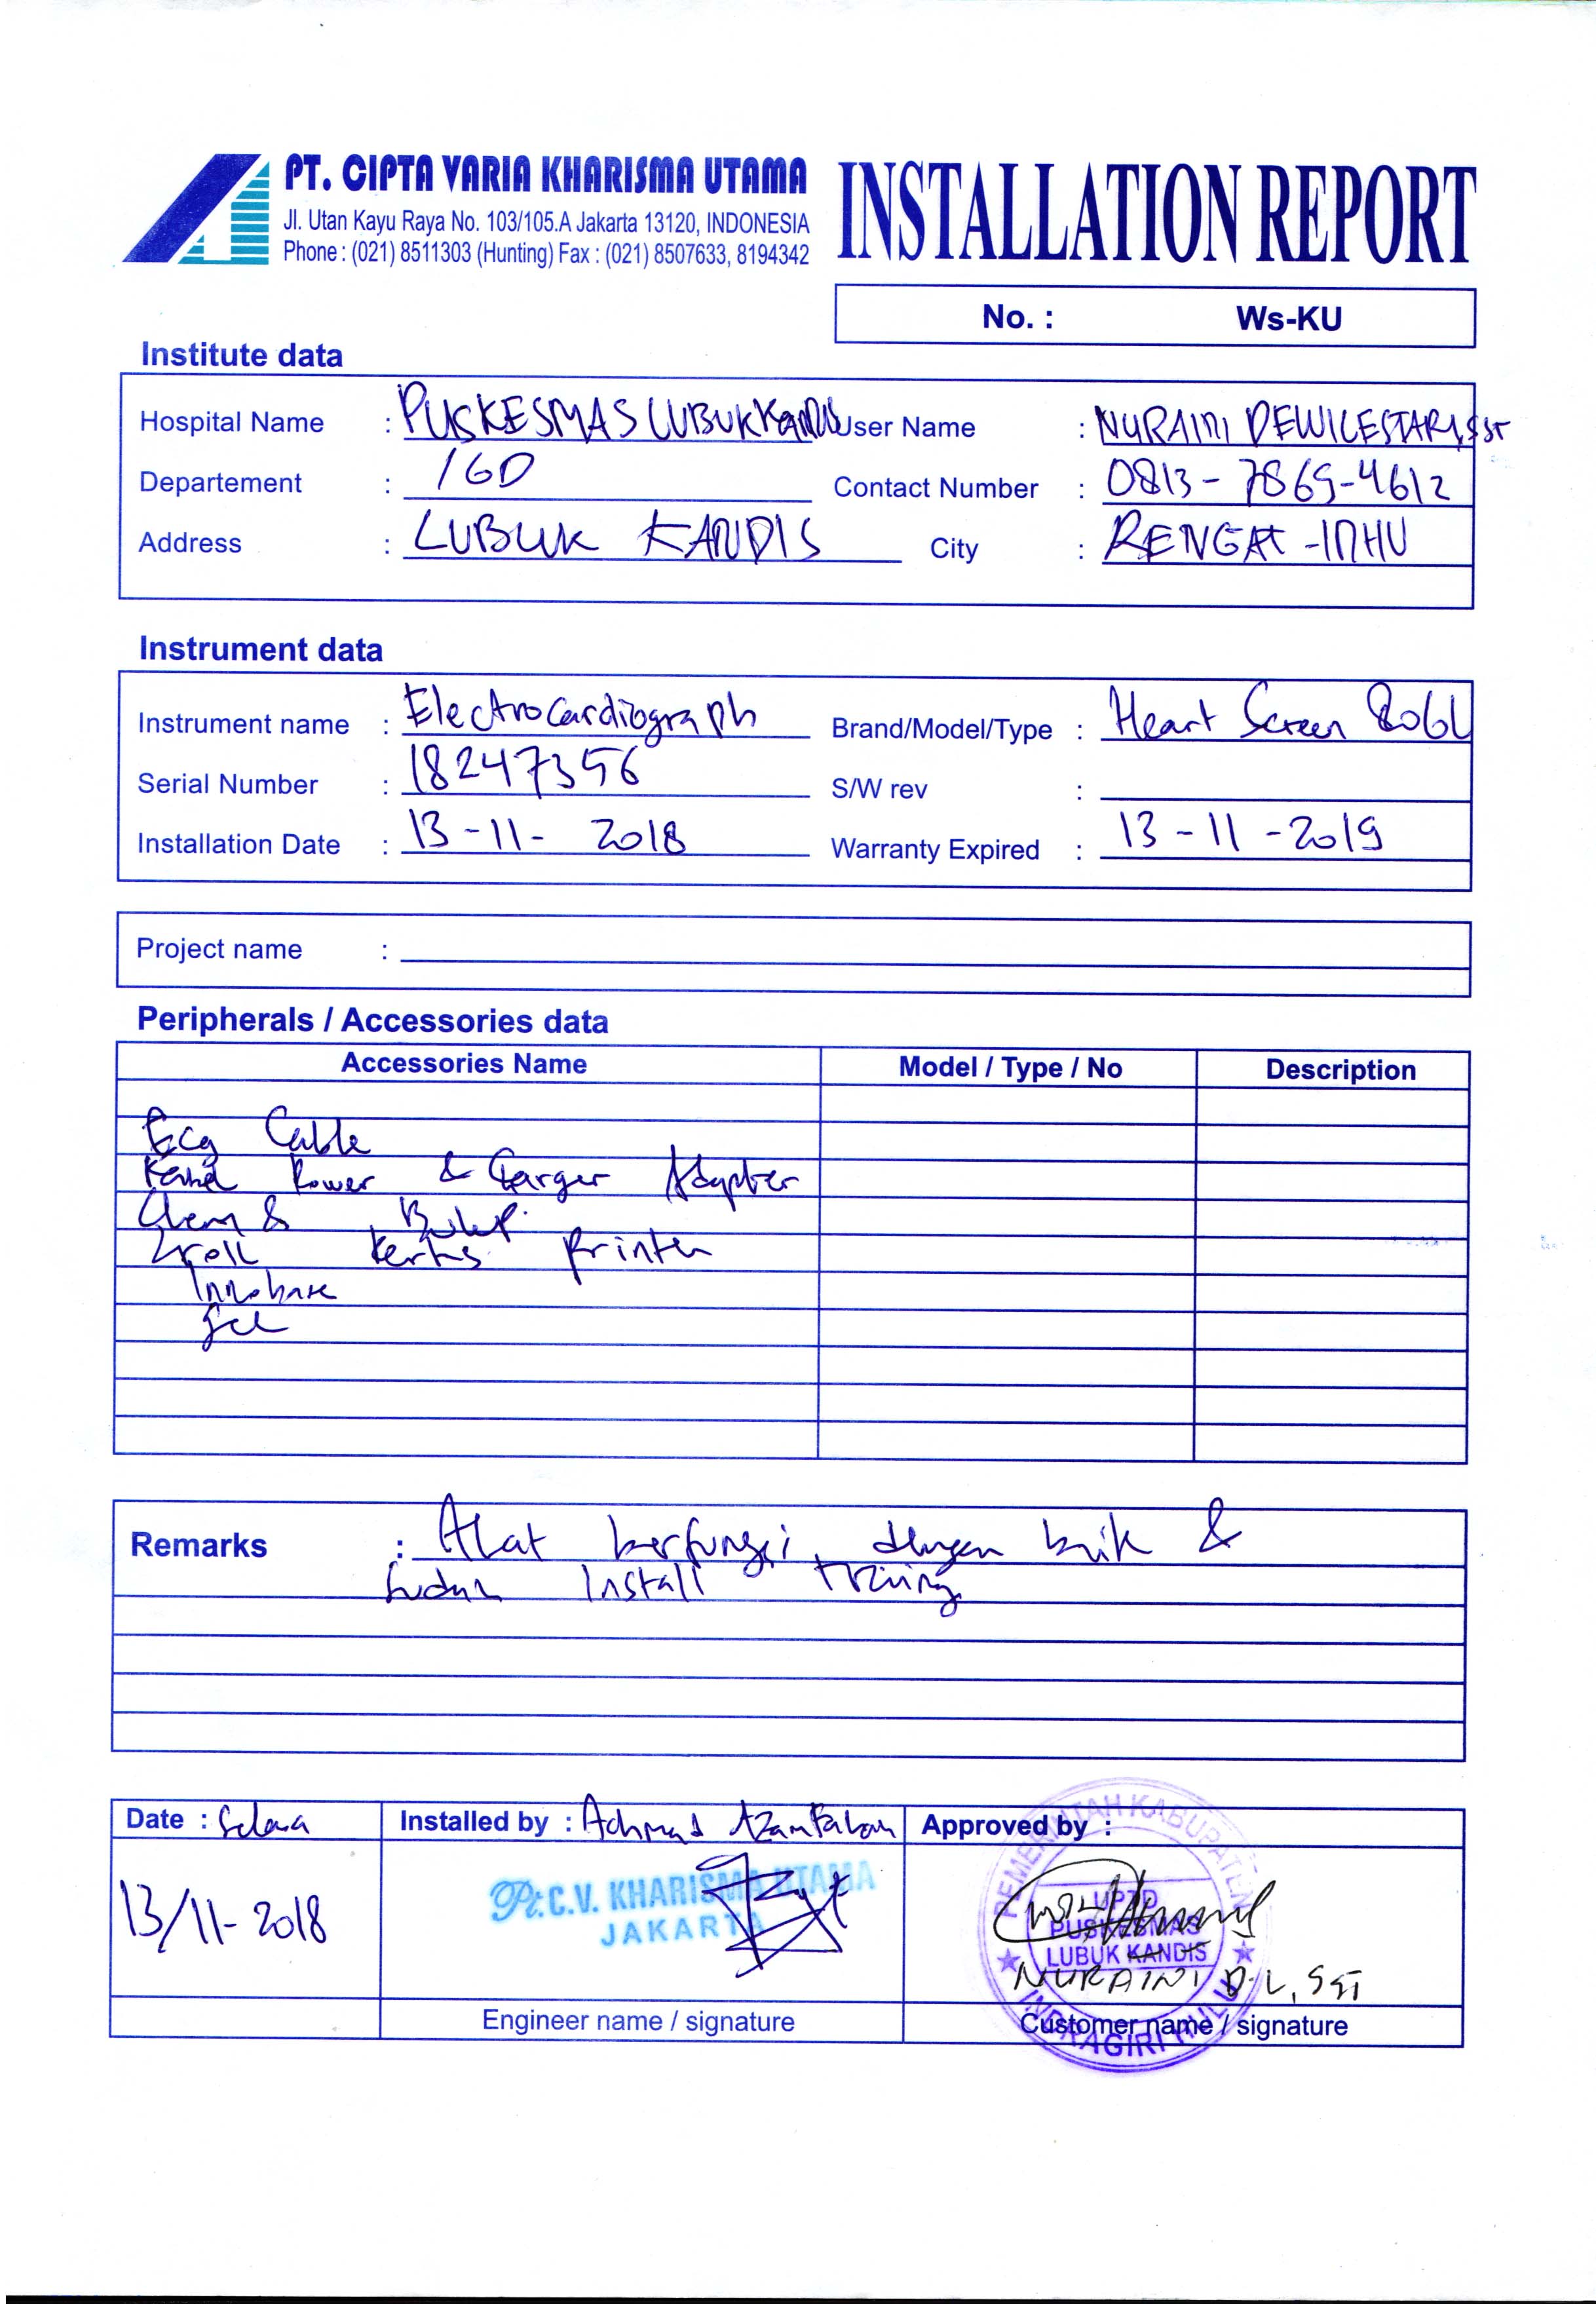 PT. CIPTA VARIA KHARISMA UTAMA
Jl. Utan Kayu Raya No. 103/105.A Jakarta 13120, INDONESIA
Phone : (021) 8511303 (Hunting) Fax : (021) 8507633, 8194342
INSTALLATION REPORT
No. : Ws-KU
Institute data
Hospital Name : PUSKESMAS LUBUK KANDIS User Name : NURAINI DEWI LESTARI, SST
Departement : IGD Contact Number : 0813-7869-4612
Address : LUBUK KANDIS City : RENGAT-INHU
Instrument data
Instrument name : Electrocardiograph Brand/Model/Type : Heart Screen
Serial Number : 18247356 S/W rev :
Installation Date : 13-11-2018 Warranty Expired : 13-11-2019
Project name :
Peripherals / Accessories data
Accessories Name Model / Type / No Description
Ecg Cable
Power & Adapter
&
kertas printer
gel
Remarks : Alat berfungsi dengan baik &
Install training
Date : Installed by : Achmad Approved by :
13/11-2018
Pt.C.V. KHARISMA UTAMA
JAKARTA
PEMERINTAH KABUPATEN
UPTD
PUSKESMAS
LUBUK KANDIS
INDRAGIRI HULU
NURAINI D.L, SST
Engineer name / signature Customer name / signature